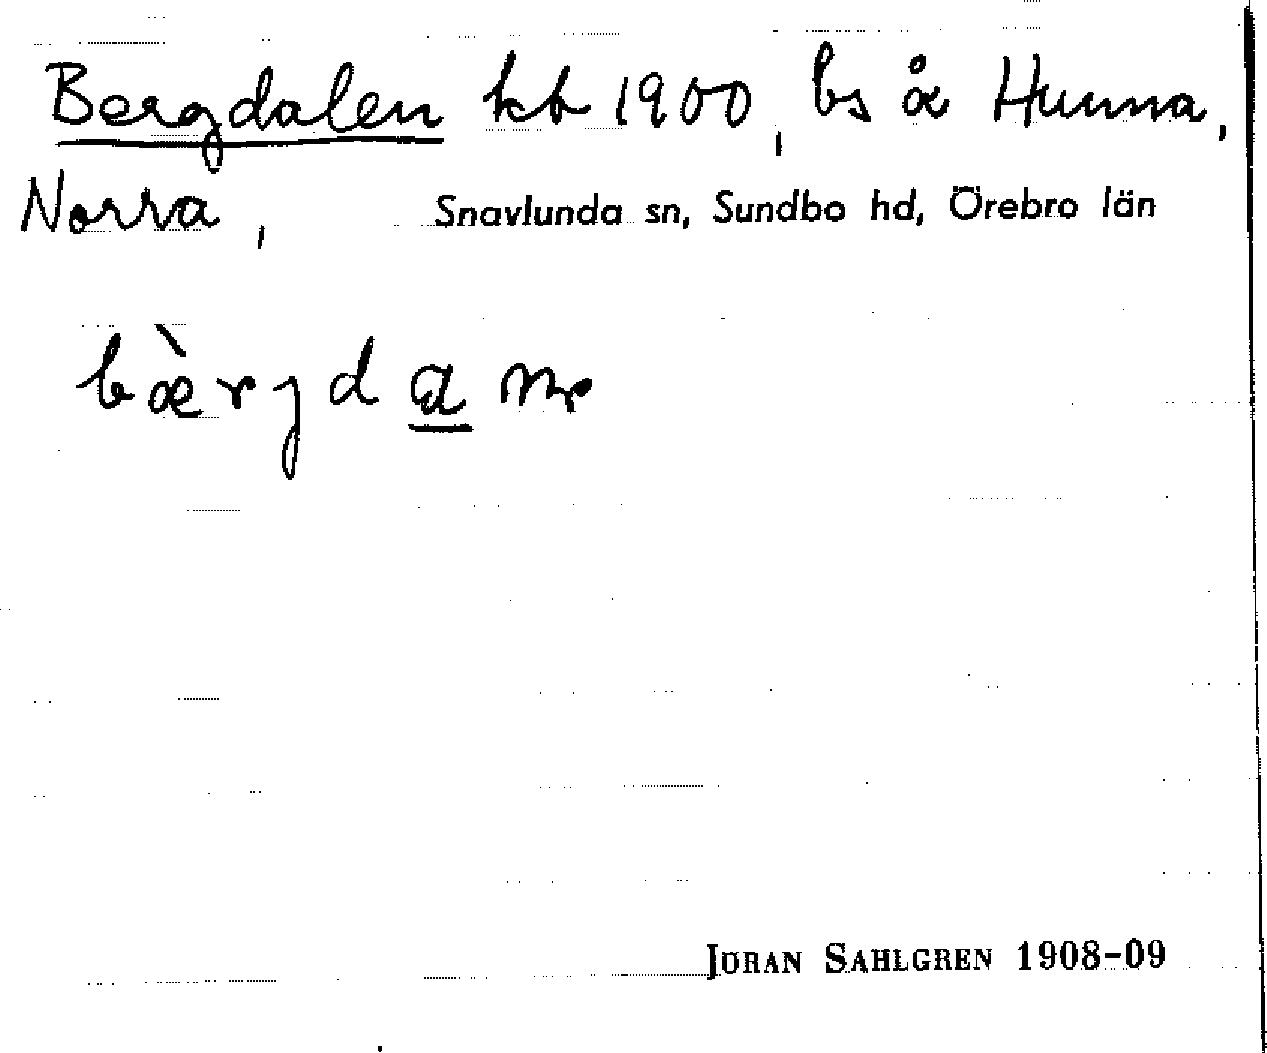 Bergdalen kb 1900, bs å Hunna,
Norra, Snavlunda sn, Sundbo hd, Örebro län
bæ̀rjda̲
JÖRAN SAHLGREN 1908-09